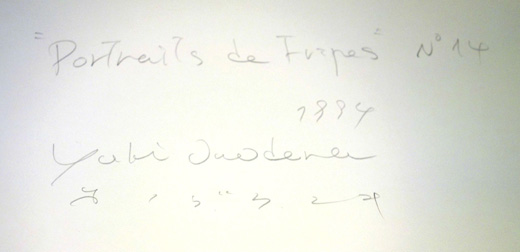 "Portraits de Fripes" N° 14
1994
Yuki Onodera